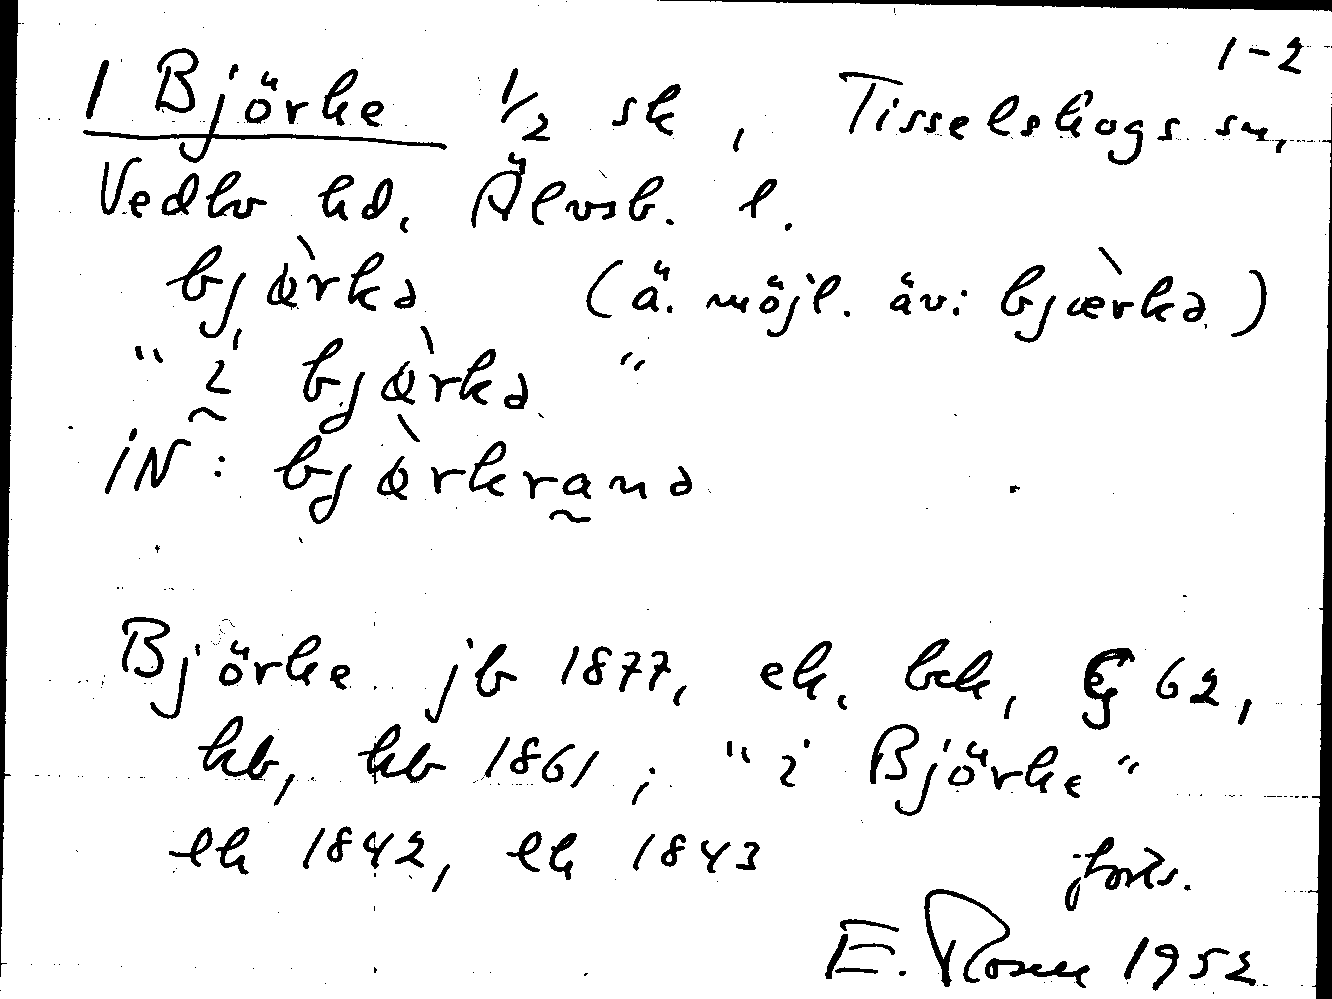 1-2
1 Björke 1/2 sk, Tisselskogs sn,
Vedbo hd. Älvsb. l.
bjø̀rkə (ä. möjl. äv: bjæ̀rkə)
"i bjø̀rkə"
iN: bjø̀rkranə
Björke jb 1877, ek. bek, Eg 62,
kb, hb 1861; "i Björke"
lh 1842, lh 1843 forts.
E. Rosen 1952